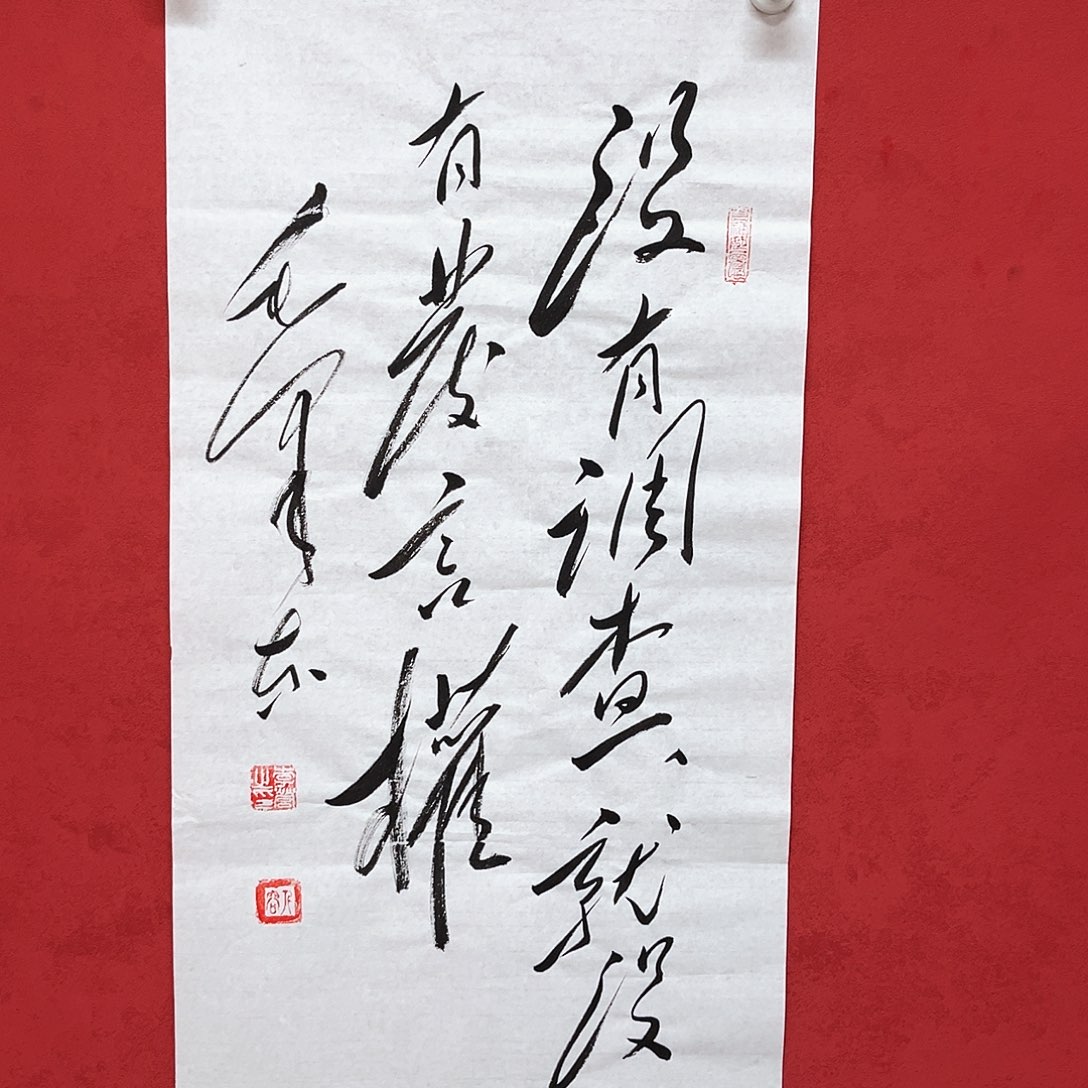 没有调查、就没
有发言权
毛泽东